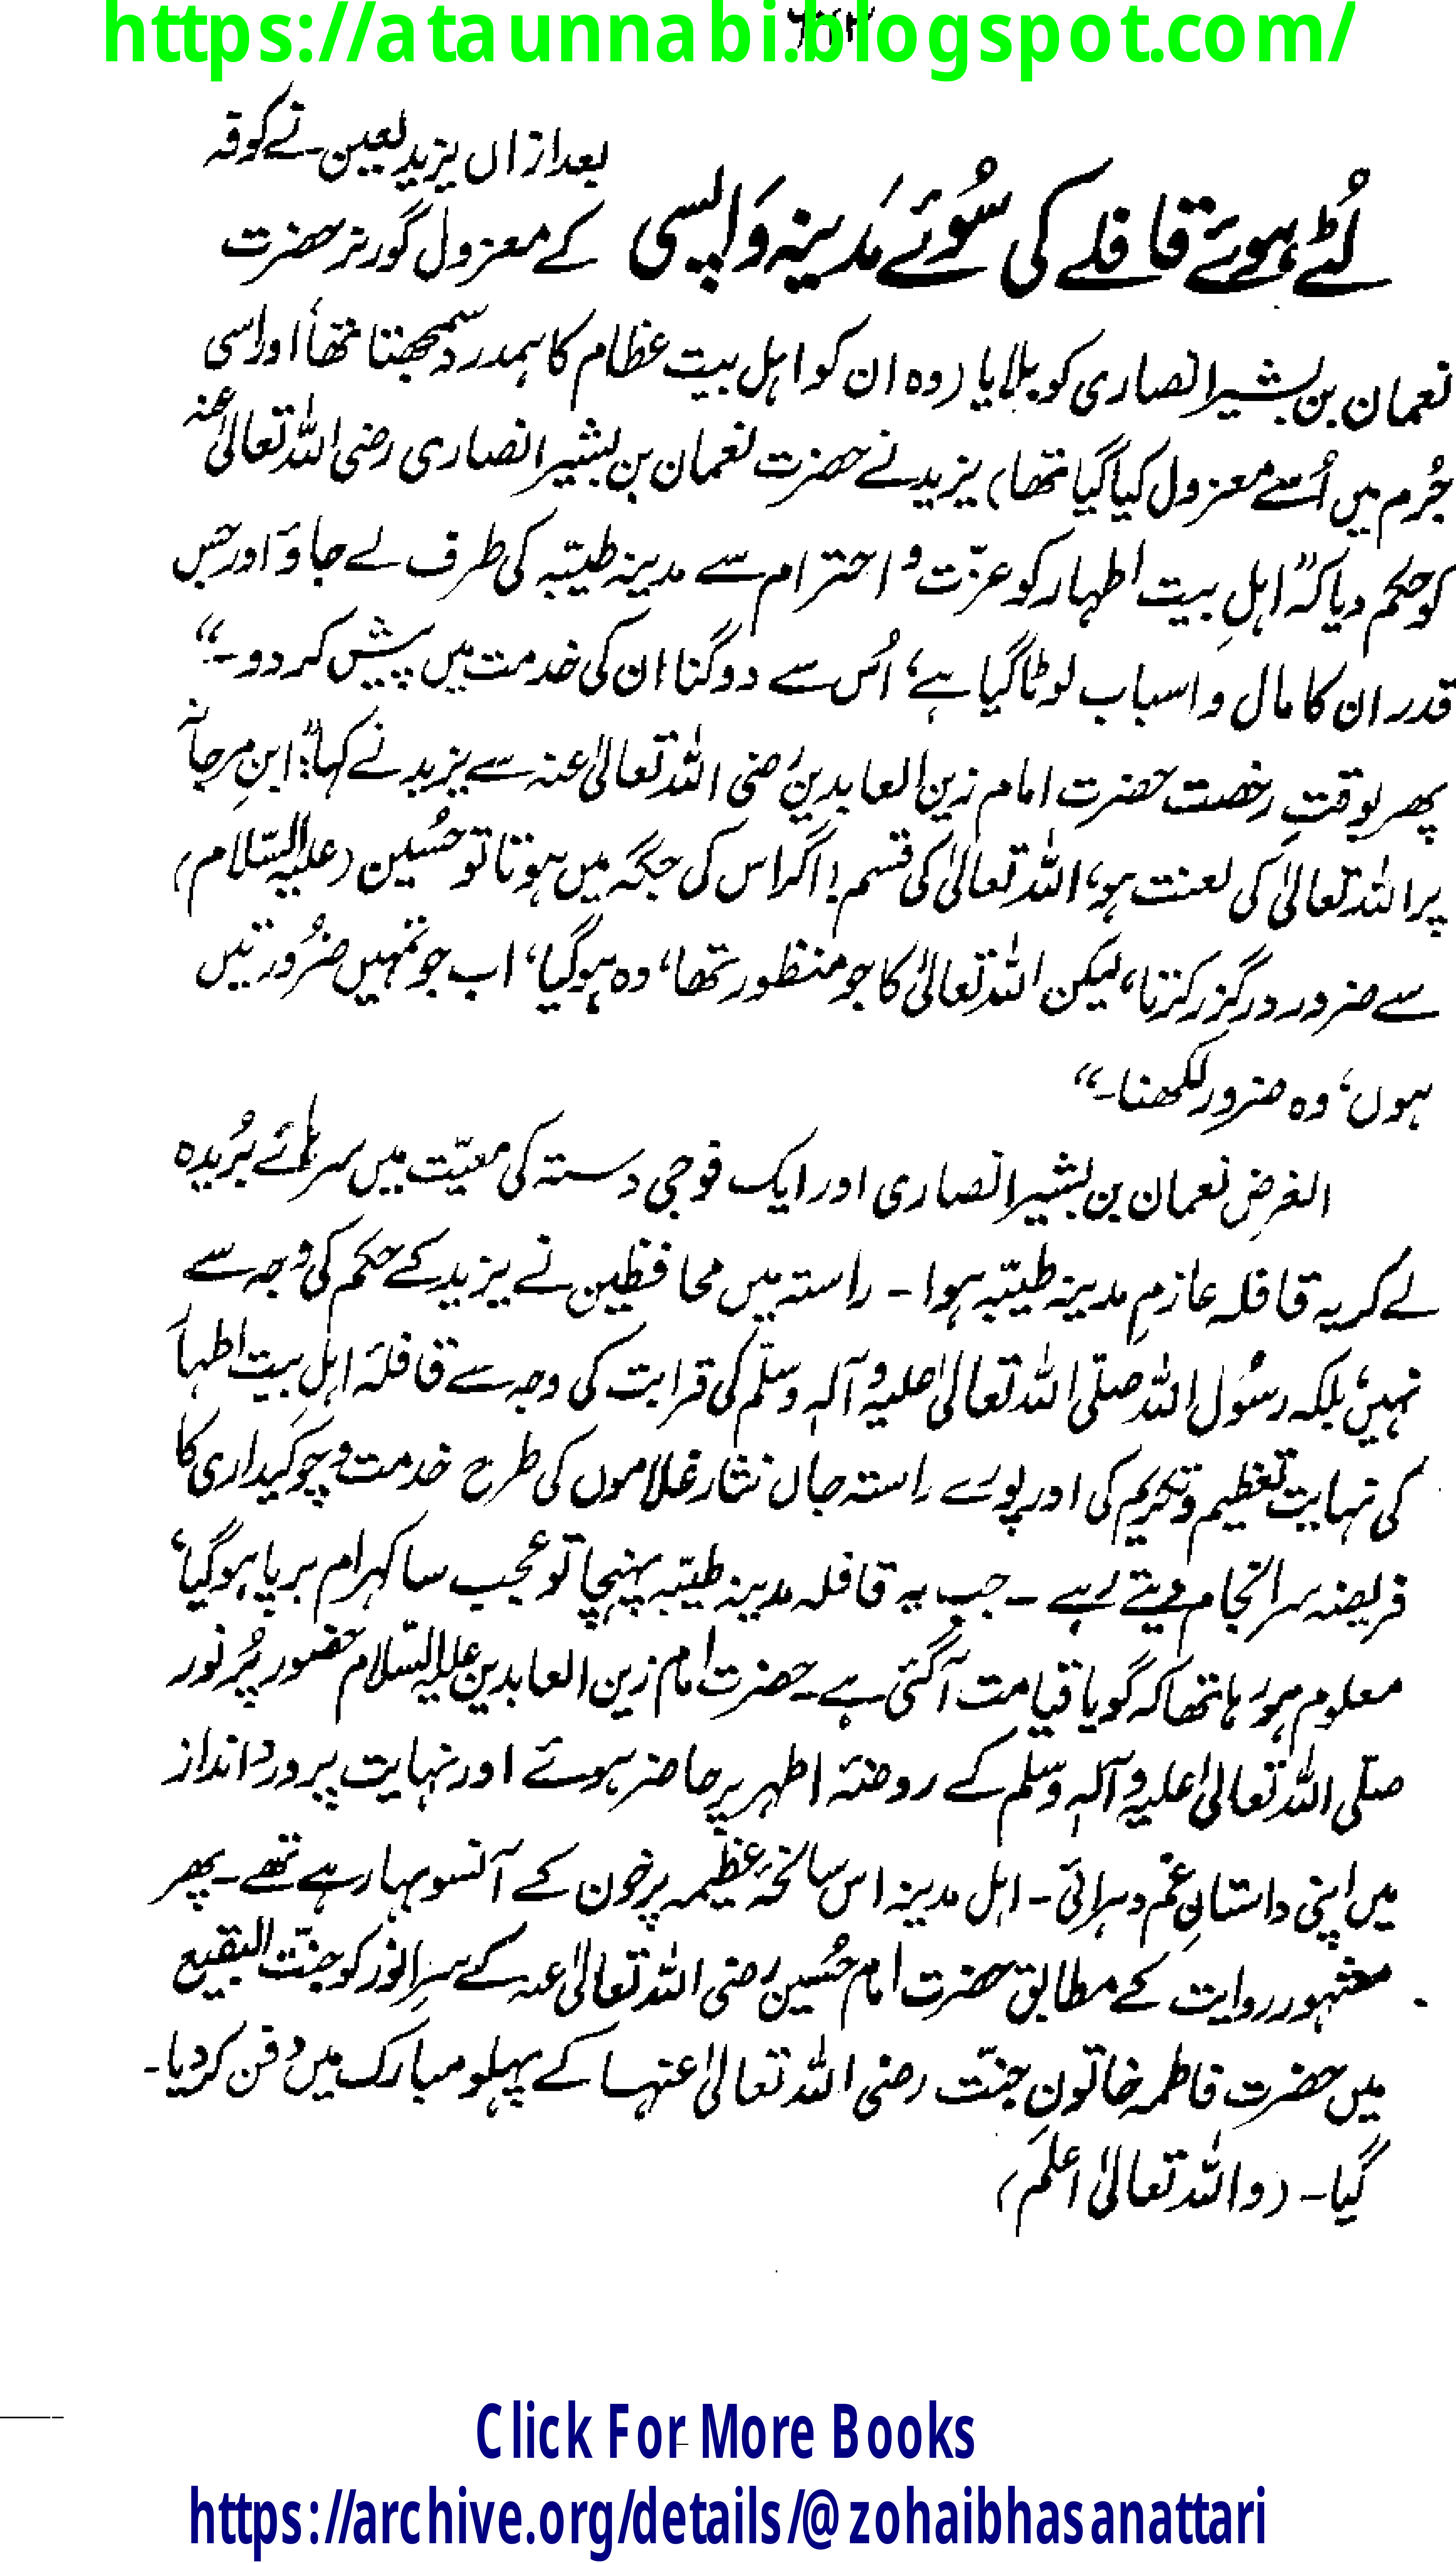 https://ataunnabi.blogspot.com/
لُٹے ہوئے قافلے کی سُوئے مَدینہ وَاپسی
بعد ازاں یزید لعین نے کوفہ
کے معزول گورنر حضرت
نعمان بن بشیر انصاری کو بلایا (وہ ان کو اہل بیت عظام کا ہمدرد سمجھتا تھا اور اسی
جُرم میں اُسے معزول کیا گیا تھا) یزید نے حضرت نعمان بن بشیر انصاری رضی اللہ تعالیٰ عنہ
کو حکم دیا کہ "اہلِ بیت اطہار کو عزّت و احترام سے مدینہ طیّبہ کی طرف لے جاؤ اور جس
قدر ان کا مال و اسباب لوٹا گیا ہے، اُس سے دوگنا ان کی خدمت میں پیش کر دو۔"
پھر بوقتِ رخصت حضرت امام زین العابدین رضی اللہ تعالیٰ عنہ سے یزید نے کہا: "ابنِ مرجانہ
پر اللہ تعالیٰ کی لعنت ہو، اللہ تعالیٰ کی قسم! اگر اس کی جگہ میں ہوتا تو حُسین (علیہ السّلام)
سے ضرور درگزر کرتا، لیکن اللہ تعالیٰ کا جو منظور تھا، وہ ہو گیا، اب جو تمہیں ضرُورتیں
ہوں، وہ ضرور لکھنا۔"
الغرض نعمان بن بشیر انصاری اور ایک فوجی دستہ کی معیّت میں سرہائے بُریدہ
لے کر یہ قافلہ عازمِ مدینہ طیّبہ ہوا ۔ راستہ میں محافظین نے یزید کے حکم کی وجہ سے
نہیں، بلکہ رسُول اللہ صلّی اللہ تعالیٰ علیہ وآلہٖ وسلّم کی قرابت کی وجہ سے قافلۂ اہلِ بیت اطہار
کی نہایت تعظیم و تکریم کی اور پورے راستہ جاں نثار غلاموں کی طرح خدمت و چوکیداری کا
فریضہ سرانجام دیتے رہے ۔ جب یہ قافلہ مدینہ طیّبہ پہنچا تو عجیب سا کہرام برپا ہو گیا،
معلوم ہو رہا تھا کہ گویا قیامت آ گئی ہے۔ حضرت امام زین العابدین علیہ السّلام حضور پُر نور
صلّی اللہ تعالیٰ علیہ وآلہٖ وسلم کے روضۂ اطہر پر حاضر ہوئے اور نہایت پر درد انداز
میں اپنی داستانِ غم دہرائی ۔ اہل مدینہ اس سانحۂ عظیمہ پر خون کے آنسو بہا رہے تھے ۔ پھر
مشہور روایت کے مطابق حضرت امام حُسین رضی اللہ تعالیٰ عنہ کے سرِ انور کو جنّت البقیع
میں حضرت فاطمہ خاتونِ جنّت رضی اللہ تعالیٰ عنہا کے پہلو مبارک میں دفن کر دیا۔
گیا ۔ (واللہ تعالیٰ اعلم)
Click For More Books
https://archive.org/details/@zohaibhasanattari